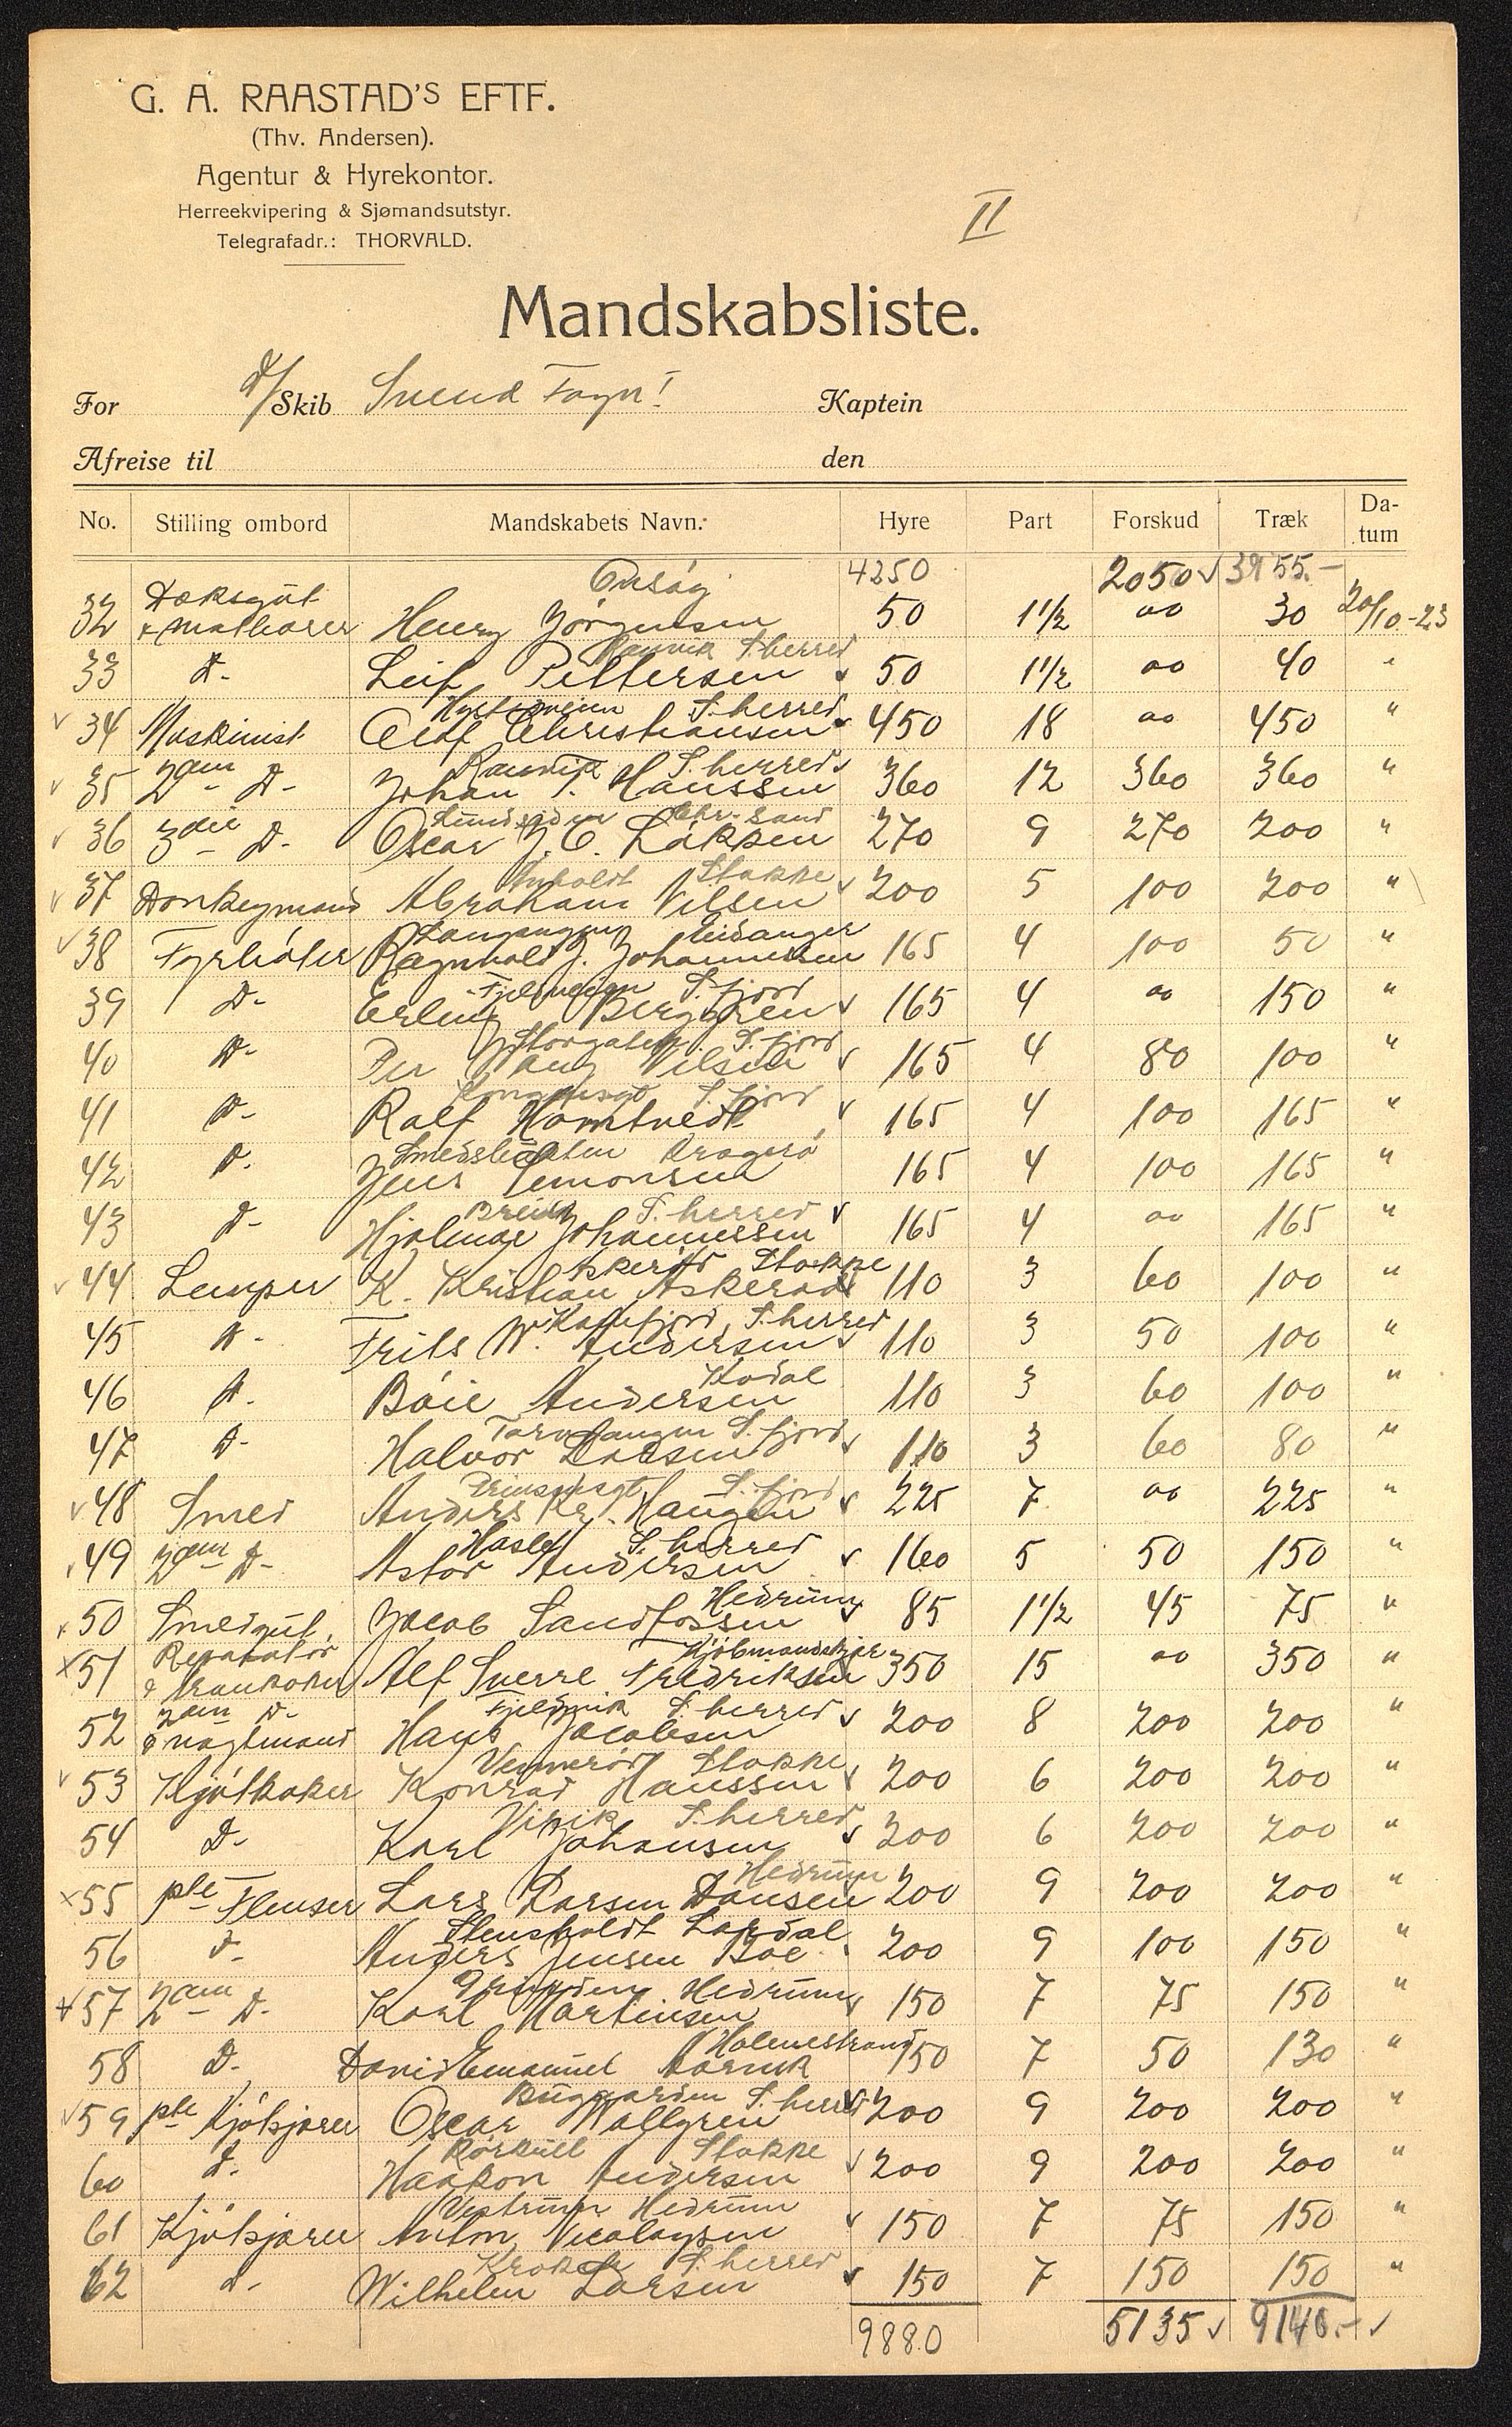 G. A. RAASTAD'S EFTF.
(Thv. Andersen).
Agentur & Hyrekontor.
Herreekvipering & Sjømandsutstyr.
Telegrafadr.: THORVALD.
II
Mandskabsliste.
For D/Skib Svend Foyn I Kaptein
Afreise til den
No. Stilling ombord Mandskabets Navn. Hyre Part Forskud Træk Da-tum
4250 2050 ✓ 3955.-
Onsøy
32 Dæksgut & matbærer Henry Jörgensen 50 1 1/2 oo 30 20/10-23
Ranvik S.herred
33 D- Leif Pettersen ✓ 50 1 1/2 oo 40 "
S.herred
✓ 34 Maskinist Olaf Christiansen ✓ 450 18 oo 450 "
Ranvik S.herred ✓
✓ 35 2den D- Johan T. Hanssen 360 12 360 360 "
Chr.sand
✓ 36 3die D- Oscar J. C. Lökken 270 9 270 200 "
Stokke
✓ 37 Donkeymand Abraham Nilsen ✓ 200 5 100 200 "
Langangen Eidanger
✓ 38 Fyrböter Ragnvald J. Johannessen 165 4 100 50 "
S.fjord
39 D- Erling Berggren ✓ 165 4 oo 150 "
Storgaten S.fjord
40 D- Per Nilsen ✓ 165 4 80 100 "
Kongensgt S.fjord
41 D- Ralf Hömtvedt ✓ 165 4 100 165 "
Kragerö
42 D. Jens Simonsen 165 4 100 165 "
S.herred ✓
43 D- Hjalmar Johannessen 165 4 oo 165 "
Askeröd Stokke
✓ 44 Lemper K. Kristian Askeröd 110 3 60 100 "
S.herred
45 D- Frits W. Andersen ✓ 110 3 50 100 "
Kodal
46 D. Böie Andersen 110 3 60 100 "
S.fjord
47 D- Halvor Larsen ✓ 110 3 60 80 "
Prinsensgt. S.fjord
✓ 48 Smed Anders Kr. Haugen ✓ 225 7 oo 225 "
Hasle S.herred
49 2den D- Astor Andersen ✓ 160 5 50 150 "
Hedrum
x 50 Smedgut. Jacob Sandfossen ✓ 85 1 1/2 45 75 "
Kjöbmandskjær
x 51 Reparatör & trankoker Alf Sverre Fredriksen 350 15 oo 350 "
Fjeldvik S.herred
52 2den D- & nöglemand Hans Jacobsen ✓ 200 8 200 200 "
Vennerød Stokke
✓ 53 Kjötkoker Konrad Hanssen ✓ 200 6 200 200 "
Virik S.herred
54 D- Karl Johansen ✓ 200 6 200 200 "
Hedrum
x 55 ple Flenser Lars Larsen Dansen 200 9 200 200 "
Stensholdt Lardal
56 D- Anders Jensen Böe 200 9 100 150 "
Hedrum
x 57 2den D- Karl Martinsen ✓ 150 7 75 150 "
Holmestrand
58 D- David Emanuel 150 7 50 130 "
Buggarden S.herred
✓ 59 ple Kjötsjærer Oscar Wallgren ✓ 200 9 200 200 "
Rörkull Stokke
60 D. Haakon Andersen ✓ 200 9 200 200 "
Vestrum Hedrum
61 Kjötsjærer Anton Nicolaysen ✓ 150 7 75 150 "
S.herred
62 D- Wilhelm Larsen ✓ 150 7 150 150 "
9880 5135 ✓ 9140.- ✓